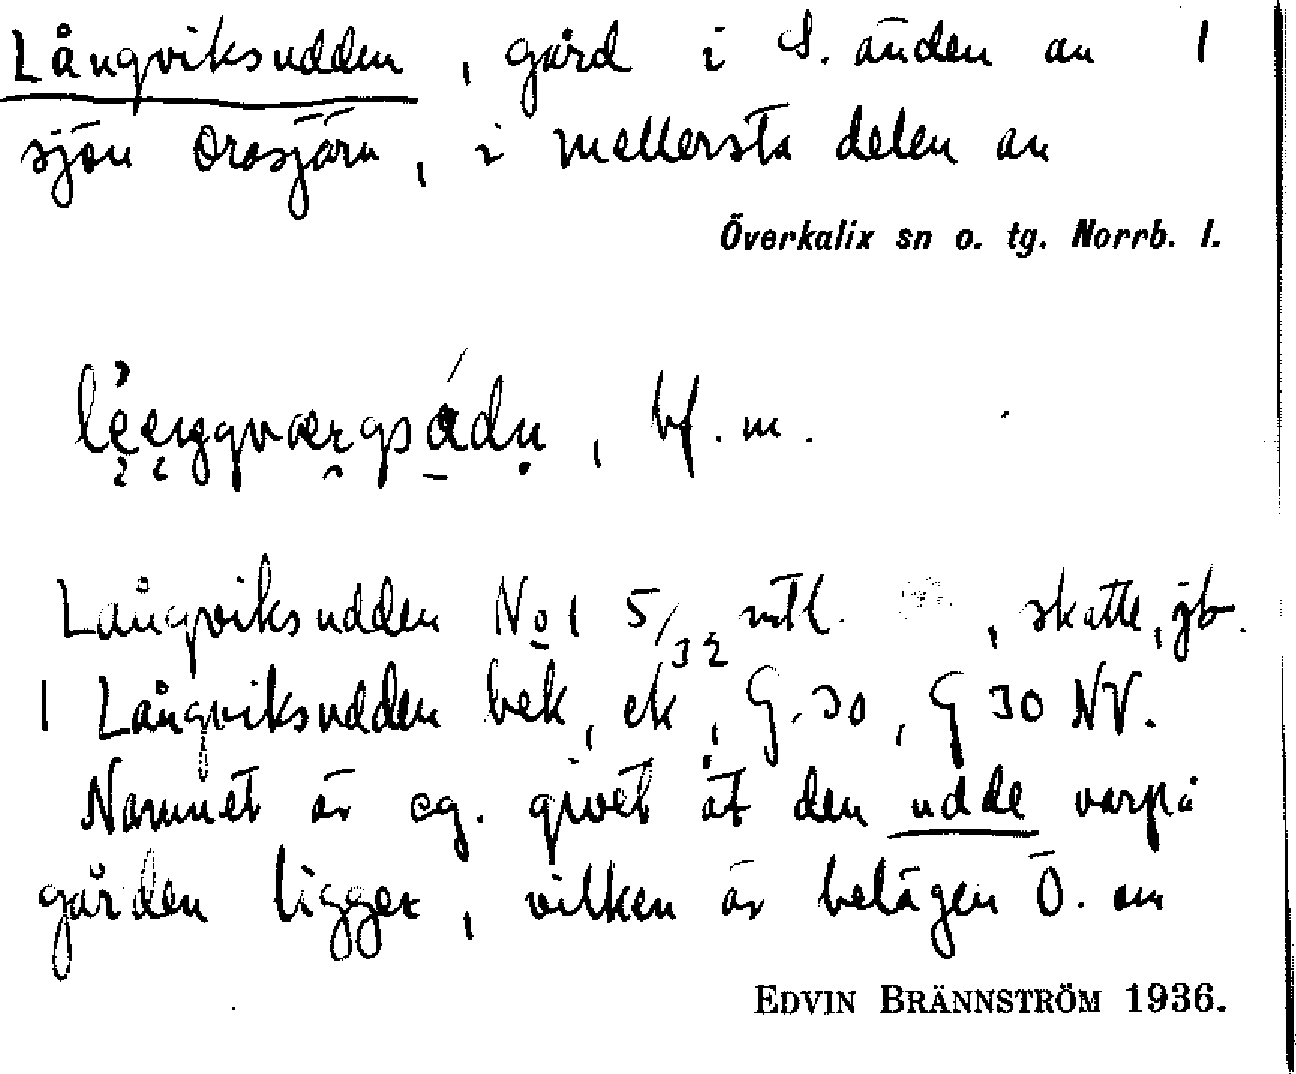 Långviksudden, gård i S. änden av 1
sjön Orasjärv, i mellersta delen av
Överkalix sn o. tg. Norrb. l.
bf. m.
Långviksudden No 1 5/32 mtl. , skatte, jb.
1 Långviksudden bek, ek, G. 30, G 30 NV.
Namnet är eg. givet åt den udde varpå
gården ligger, vilken är belägen Ö. om
EDVIN BRÄNNSTRÖM 1936.